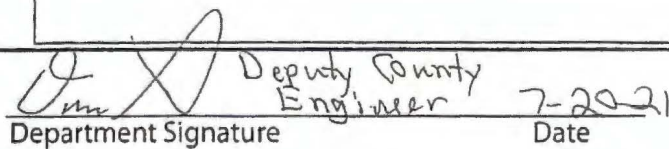 Deputy County
Engineer 7-20-21
Department Signature Date